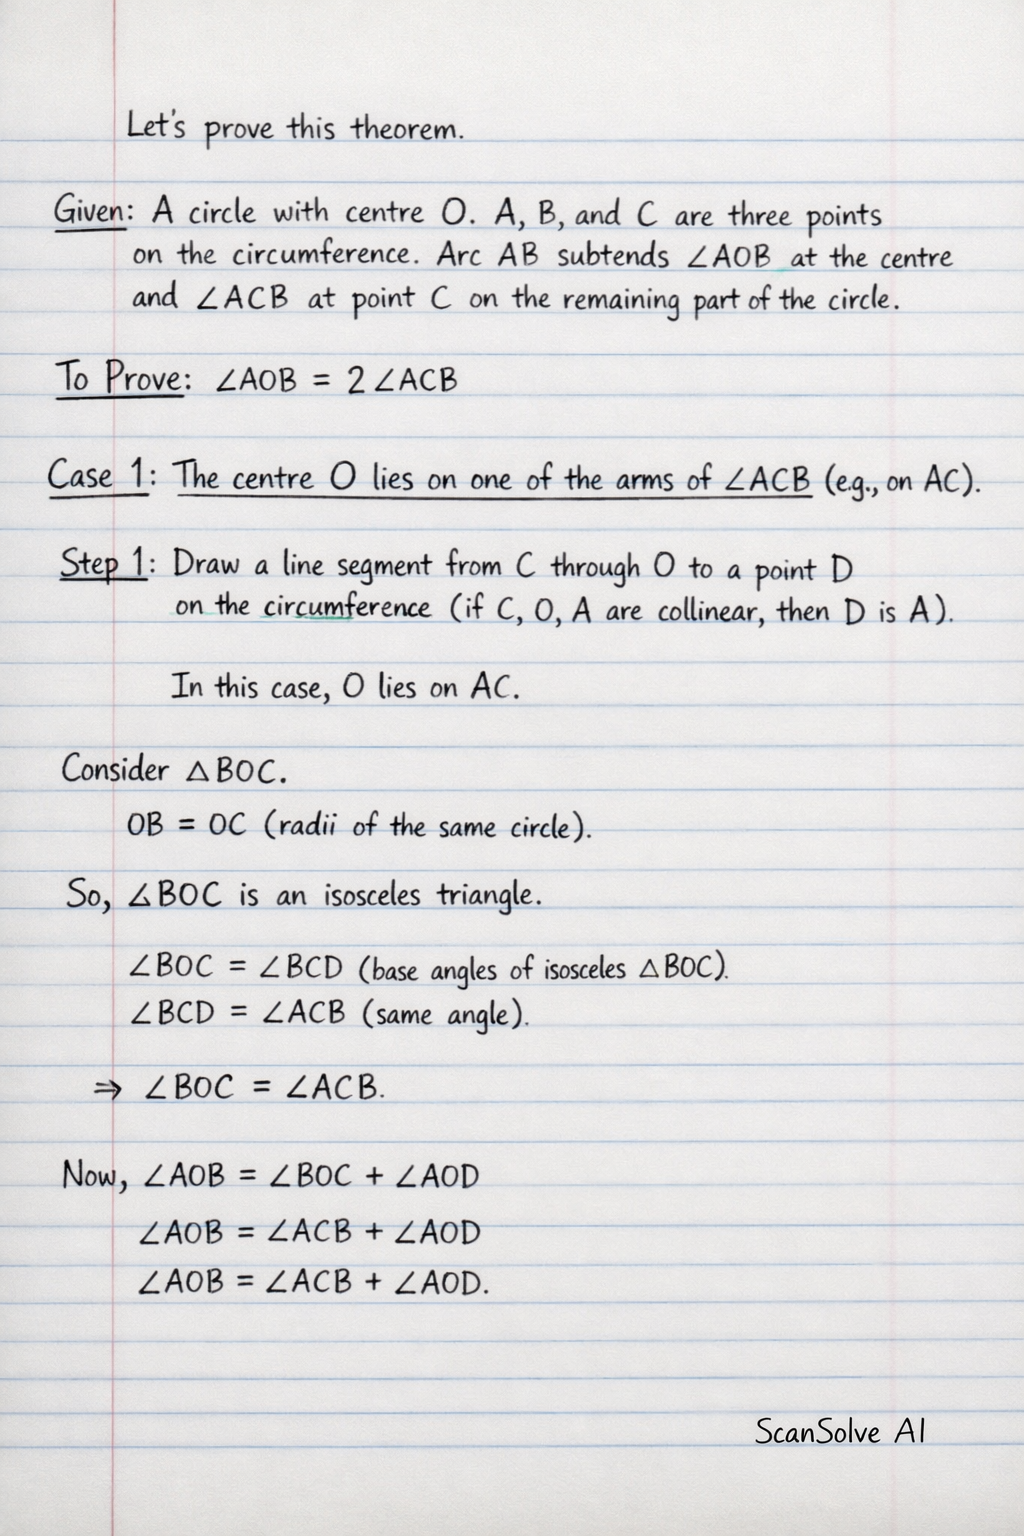 Let's prove this theorem.
Given: A circle with centre O. A, B, and C are three points
on the circumference. Arc AB subtends ∠AOB at the centre
and ∠ACB at point C on the remaining part of the circle.
To Prove: ∠AOB = 2 ∠ACB
Case 1: The centre O lies on one of the arms of ∠ACB (e.g., on AC).
Step 1: Draw a line segment from C through O to a point D
on the circumference (if C, O, A are collinear, then D is A).
In this case, O lies on AC.
Consider △BOC.
OB = OC (radii of the same circle).
So, △BOC is an isosceles triangle.
∠BOC = ∠BCD (base angles of isosceles △BOC).
∠BCD = ∠ACB (same angle).
⇒ ∠BOC = ∠ACB.
Now, ∠AOB = ∠BOC + ∠AOD
∠AOB = ∠ACB + ∠AOD
∠AOB = ∠ACB + ∠AOD.
ScanSolve AI